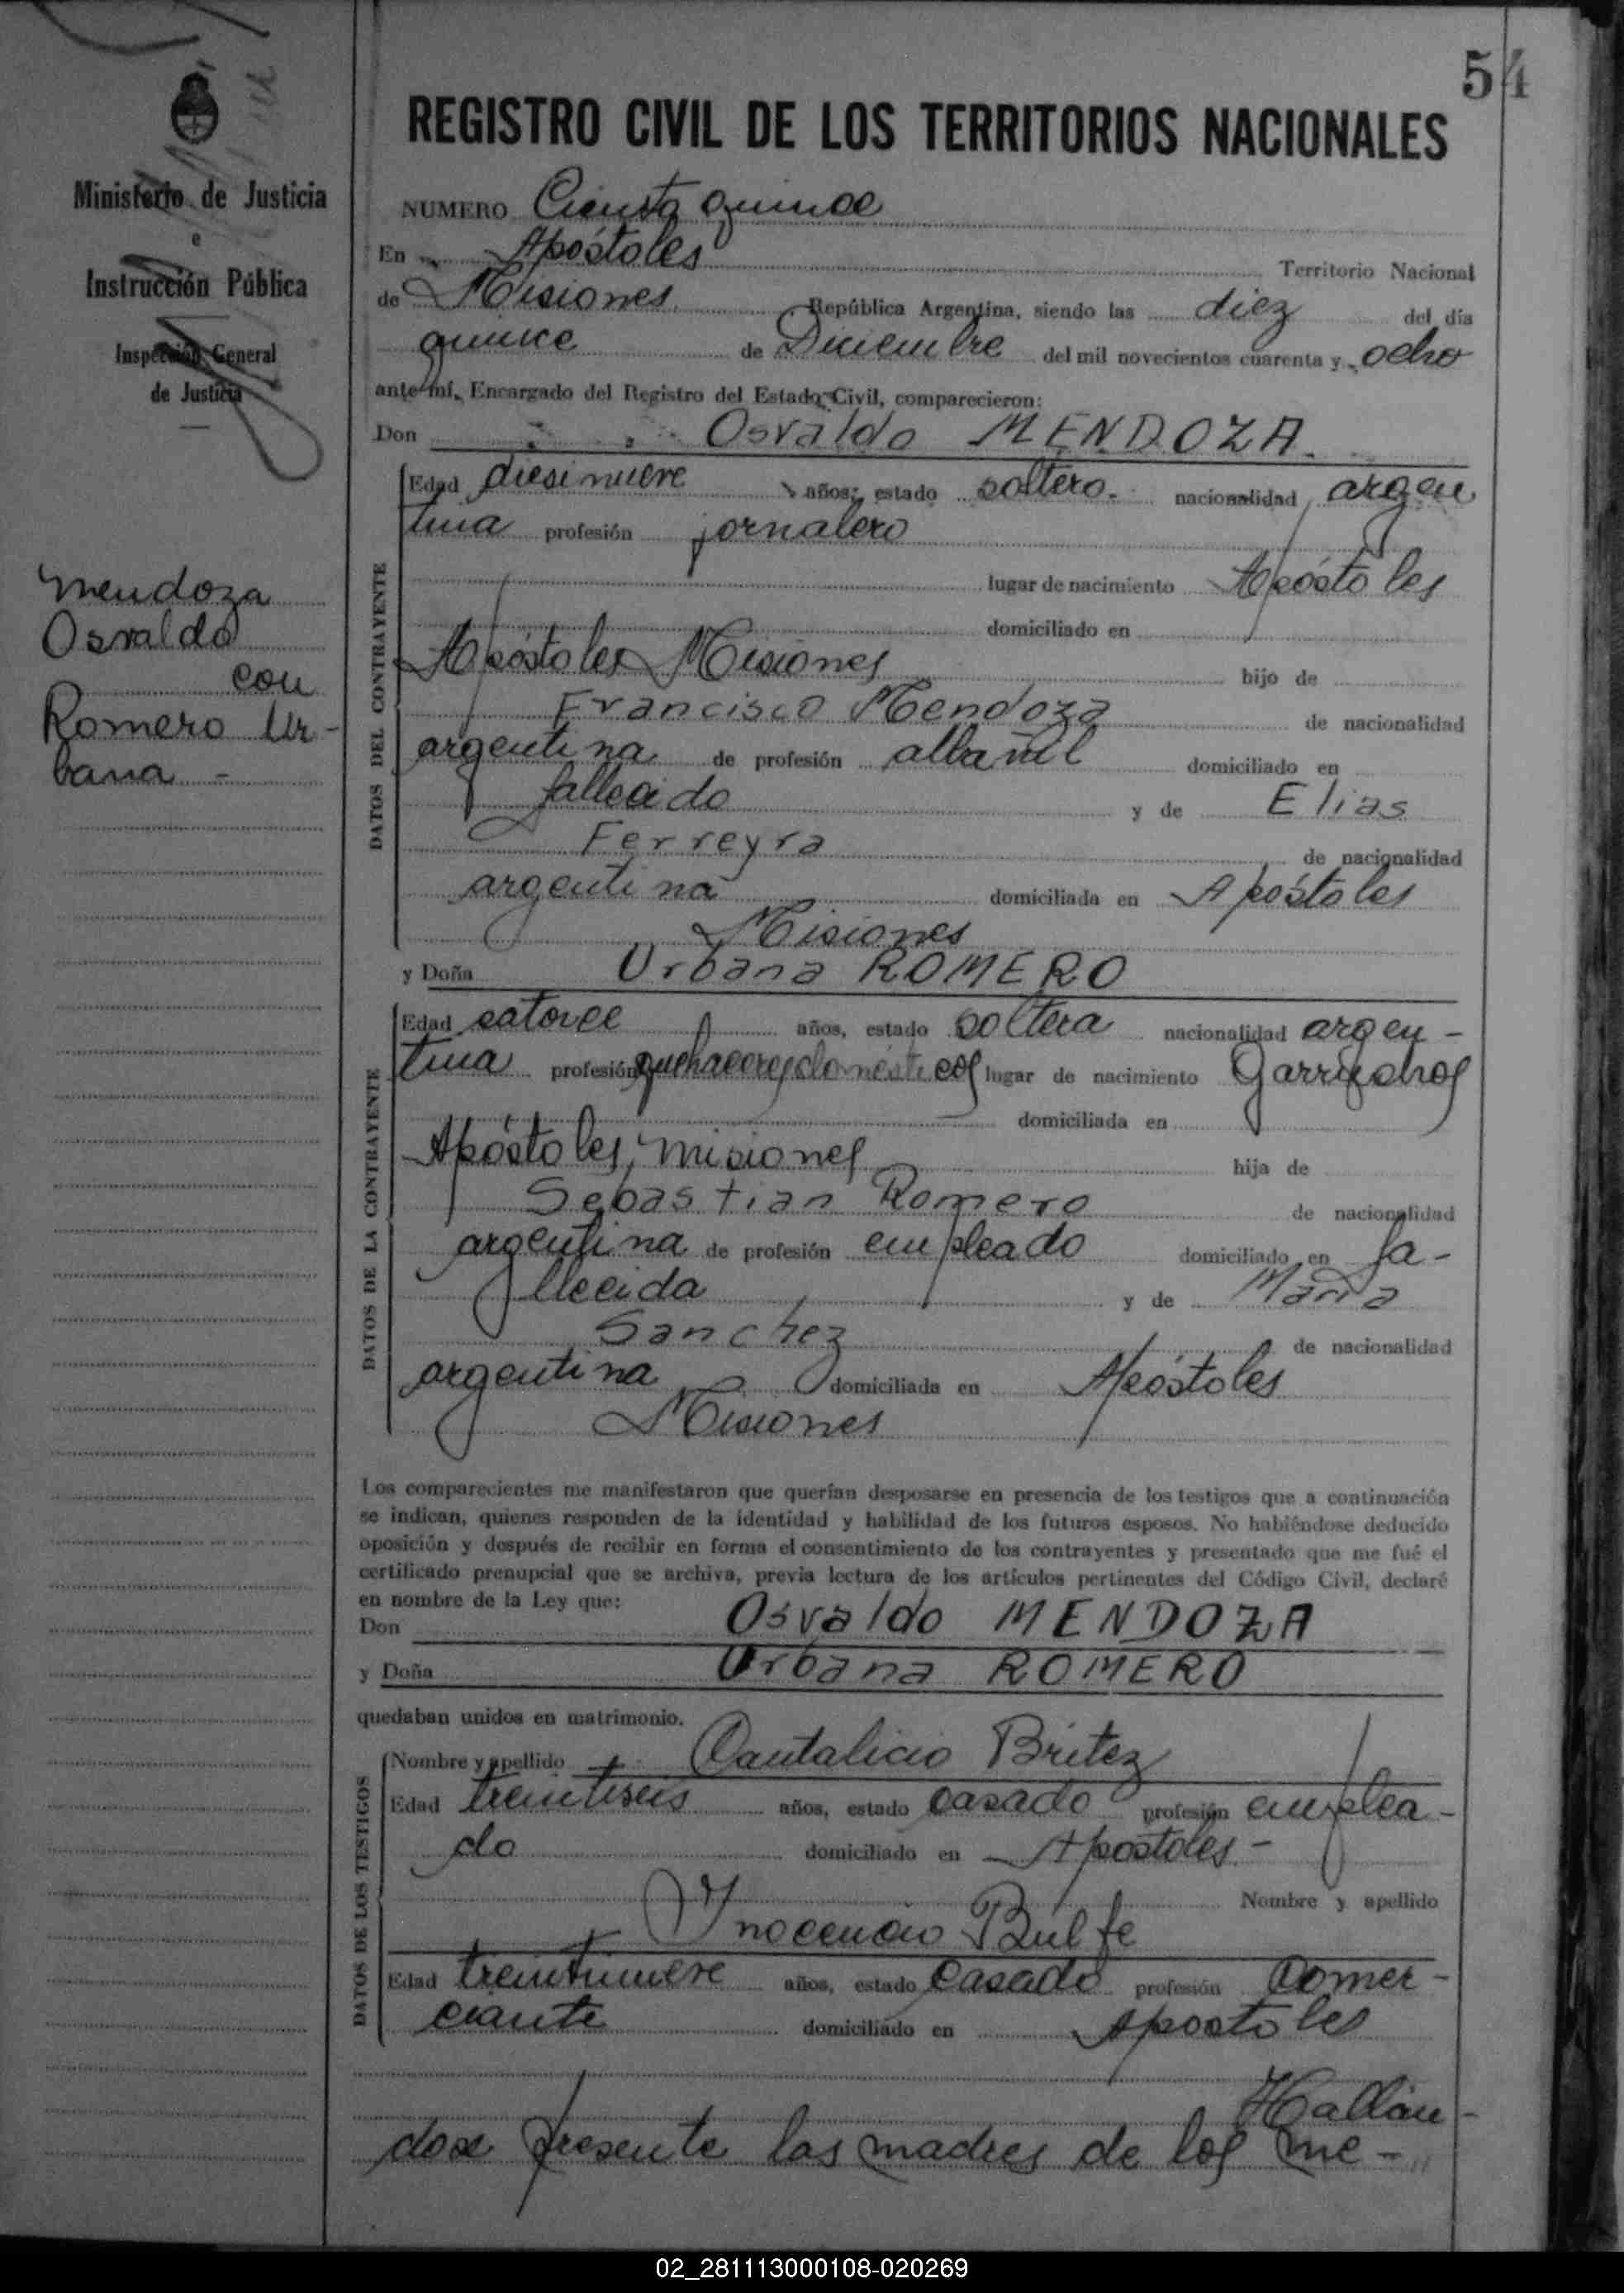 54
Ministerio de Justicia
e
Instrucción Pública
Inspección General
de Justicia
REGISTRO CIVIL DE LOS TERRITORIOS NACIONALES
NUMERO Ciento quince
En Apóstoles Territorio Nacional
de Misiones República Argentina, siendo las diez del día
quince de Diciembre del mil novecientos cuarenta y ocho
ante mí, Encargado del Registro del Estado Civil, comparecieron:
Don Osvaldo MENDOZA.
Mendoza
Osvaldo
con
Romero Ur-
bana -
DATOS DEL CONTRAYENTE
Edad diesinueve años; estado soltero. nacionalidad argen
tina profesión jornalero
lugar de nacimiento Apóstoles
domiciliado en
Apóstoles Misiones hijo de
Francisco Mendoza de nacionalidad
argentina de profesión albañil domiciliado en
fallecido y de Elias
Ferreyra de nacionalidad
argentina domiciliada en Apóstoles
Misiones
y Doña Urbana ROMERO
DATOS DE LA CONTRAYENTE
Edad catorce años, estado soltera nacionalidad argen-
tina profesión quehaceres domésticos lugar de nacimiento Garruchos
domiciliada en
Apóstoles, Misiones hija de
Sebastian Romero de nacionalidad
argentina de profesión empleado domiciliado en fa-
llecida y de Maria
Sanchez de nacionalidad
argentina domiciliada en Apóstoles
Misiones
Los comparecientes me manifestaron que querían desposarse en presencia de los testigos que a continuación
se indican, quienes responden de la identidad y habilidad de los futuros esposos. No habiéndose deducido
oposición y después de recibir en forma el consentimiento de los contrayentes y presentado que me fué el
certificado prenupcial que se archiva, previa lectura de los artículos pertinentes del Código Civil, declaré
en nombre de la Ley que:
Don Osvaldo MENDOZA
y Doña Urbana ROMERO
quedaban unidos en matrimonio.
DATOS DE LOS TESTIGOS
Nombre y apellido Cantalicio Britez
Edad treintiseis años, estado casado profesión emplea-
do domiciliado en Apostoles-
Nombre y apellido
Inocencio Bulfe
Edad treintinueve años, estado casado profesión comer-
ciante domiciliado en Apostoles
Hallan-
dose presente las madres de los me-
02_281113000108-020269